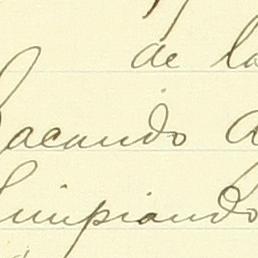 de la
Sacando a
Limpiando